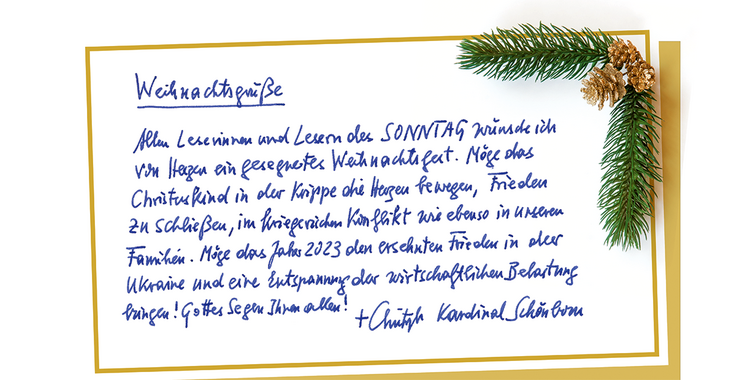 Weihnachtsgrüße
Allen Leserinnen und Lesern des SONNTAG wünsche ich
von Herzen ein gesegnetes Weihnachtsfest. Möge das
Christuskind in der Krippe die Herzen bewegen, Frieden
zu schließen, im kriegerischen Konflikt wie ebenso in unseren
Familien. Möge das Jahr 2023 den ersehnten Frieden in der
Ukraine und eine Entspannung der wirtschaftlichen Belastung
bringen! Gottes Segen Ihnen allen!
+ Christoph Kardinal Schönborn